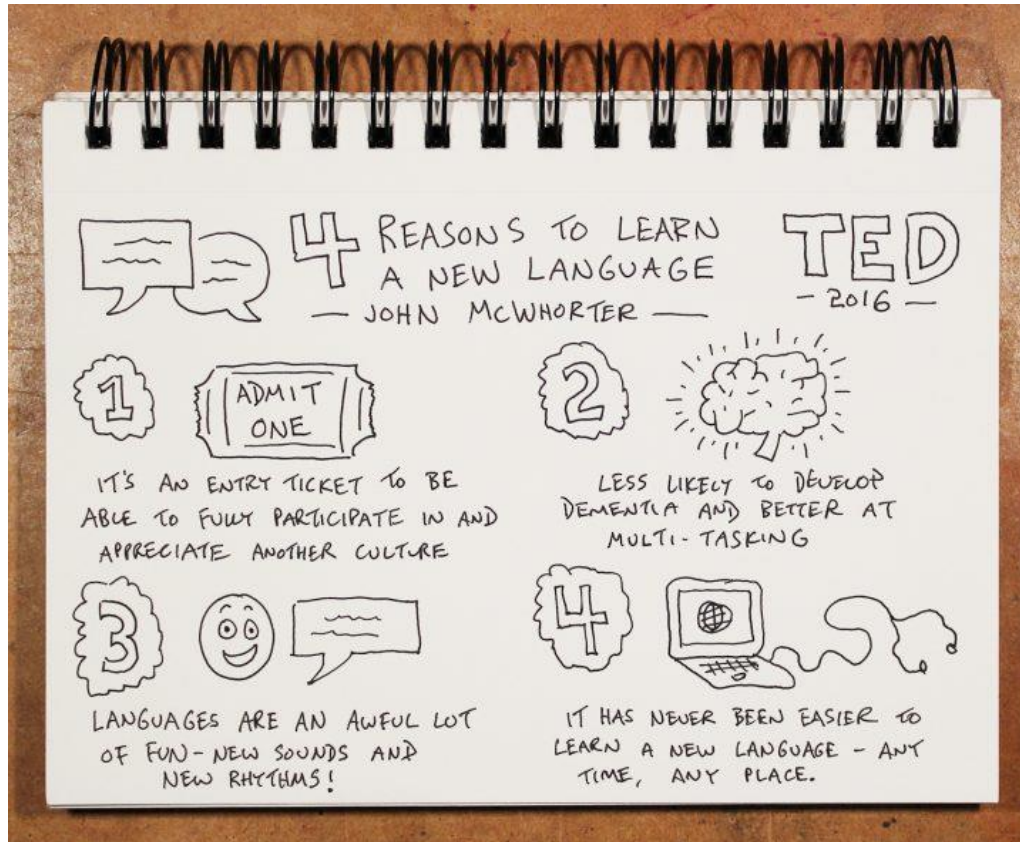 4 REASONS TO LEARN
A NEW LANGUAGE
— JOHN McWHORTER —
TED
- 2016 -
1
ADMIT
ONE
IT'S AN ENTRY TICKET TO BE
ABLE TO FULLY PARTICIPATE IN AND
APPRECIATE ANOTHER CULTURE
2
LESS LIKELY TO DEVELOP
DEMENTIA AND BETTER AT
MULTI-TASKING
3
LANGUAGES ARE AN AWFUL LOT
OF FUN - NEW SOUNDS AND
NEW RHYTHMS!
4
IT HAS NEVER BEEN EASIER TO
LEARN A NEW LANGUAGE - ANY
TIME, ANY PLACE.